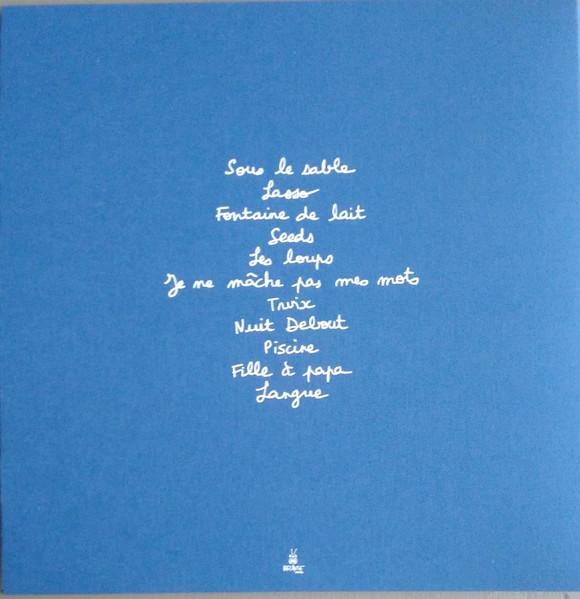 Sous le sable
Lasso
Fontaine de lait
Seeds
Les loups
Je ne mâche pas mes mots
Twix
Nuit Debout
Piscine
Fille à papa
Langue